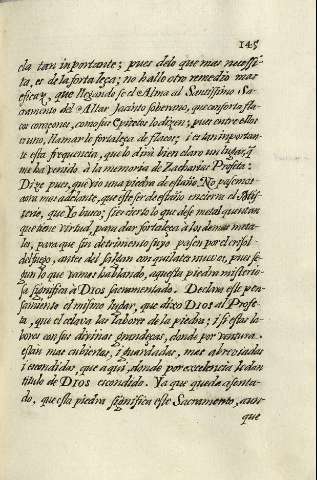 145
cia tan inportante; pues delo que mas necessi-
ta, es de la fortaleça; no hallo otro remedio mas
eficaz, que llegándose el Alma al Santissimo Sa-
cramento del Altar, Jacinto soberano, que conforta fla-
cos coraçones, como sus Epitetos lo dizen; pues entre ellos
es uno, llamarle fortaleza de flacos; i es tan inportan-
te esta frequencia, que lo dirà bien claro un lugar, q̃
me ha venido à la memoria de Zacharias Profeta:
Dize pues, que viò una piedra de estaño. No pasemos
aora mas adelante, que este ser de estaño encierra el Mis-
terio, que Yo busco; si es cierto lo que dese metal quentan
que tiene virtud, para dar fortaleça à los demas meta-
les, para que sin detrimento suyo pasen por el crisol
del fuego, antes del saldan con quilates nuevos, pues se-
gun lo que vamos hablando, aquesta piedra misterio-
sa significa à DIOS sacramentado. Declara este pen-
samiento el mismo lugar, que dixo DIOS al Profe-
ta, que èl celava las labores de la piedra; i si estas la-
bores con sus divinas grandeças, donde por ventura
estàn mas cubiertas, i guardadas, mas abreviadas
i escondidas que aqui, donde por excelencia le dan
titulo de DIOS escondido. Ya que queda asenta-
do, que esta piedra significa este Sacramento, aun-
que